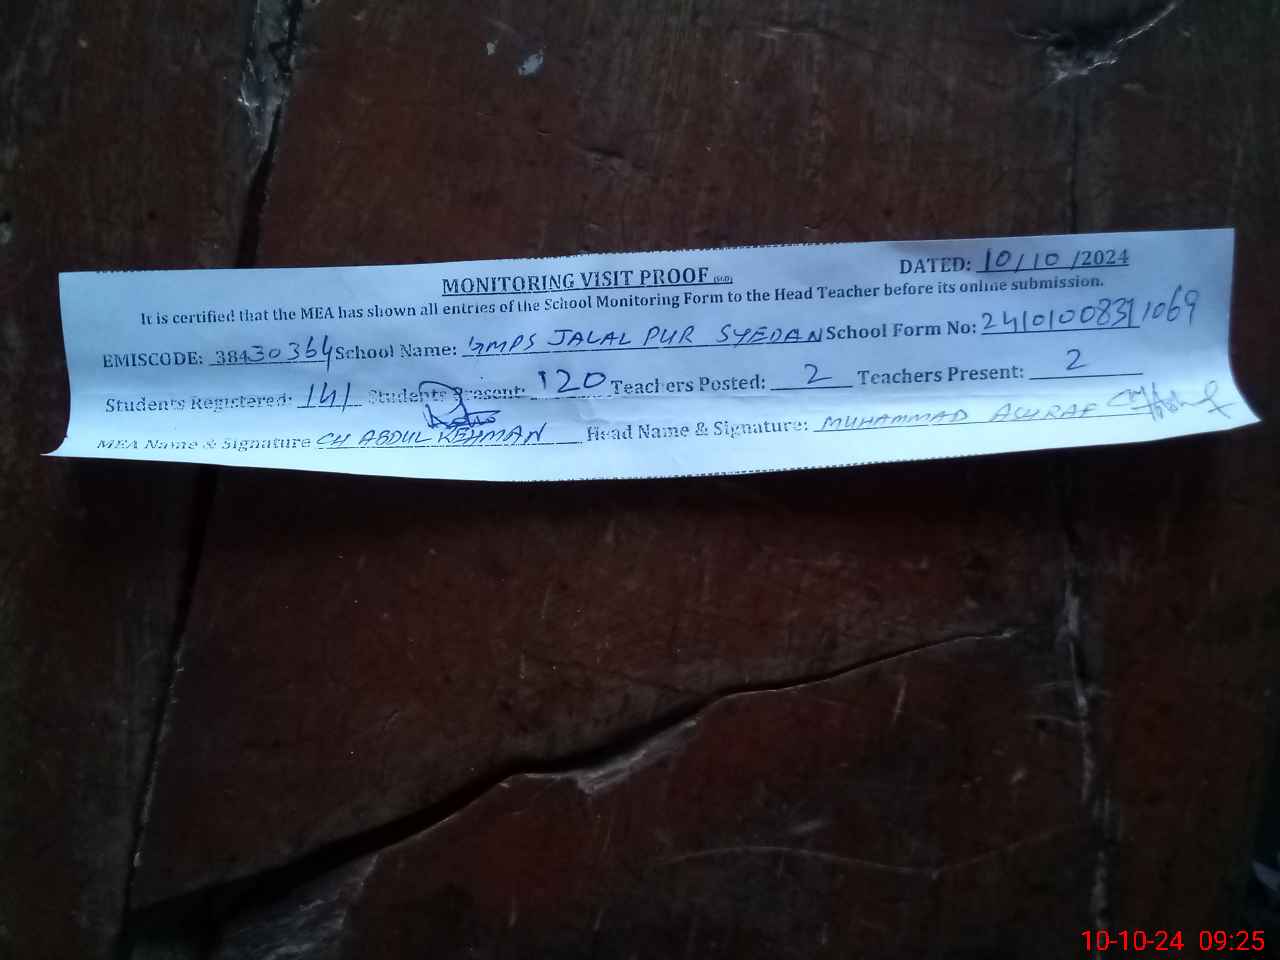 MONITORING VISIT PROOF DATED: 10/10/2024
It is certified that the MEA has shown all entries of the School Monitoring Form to the Head Teacher before its online submission.
EMISCODE: 38430364 School Name: GMPS JALAL PUR SYEDAN School Form No: 24101008311069
Students Registered: 141 Students Present: 120 Teachers Posted: 2 Teachers Present: 2
MEA Name & Signature CH ABDUL REHMAN Head Name & Signature: MUHAMMAD ASHRAF
10-10-24 09:25